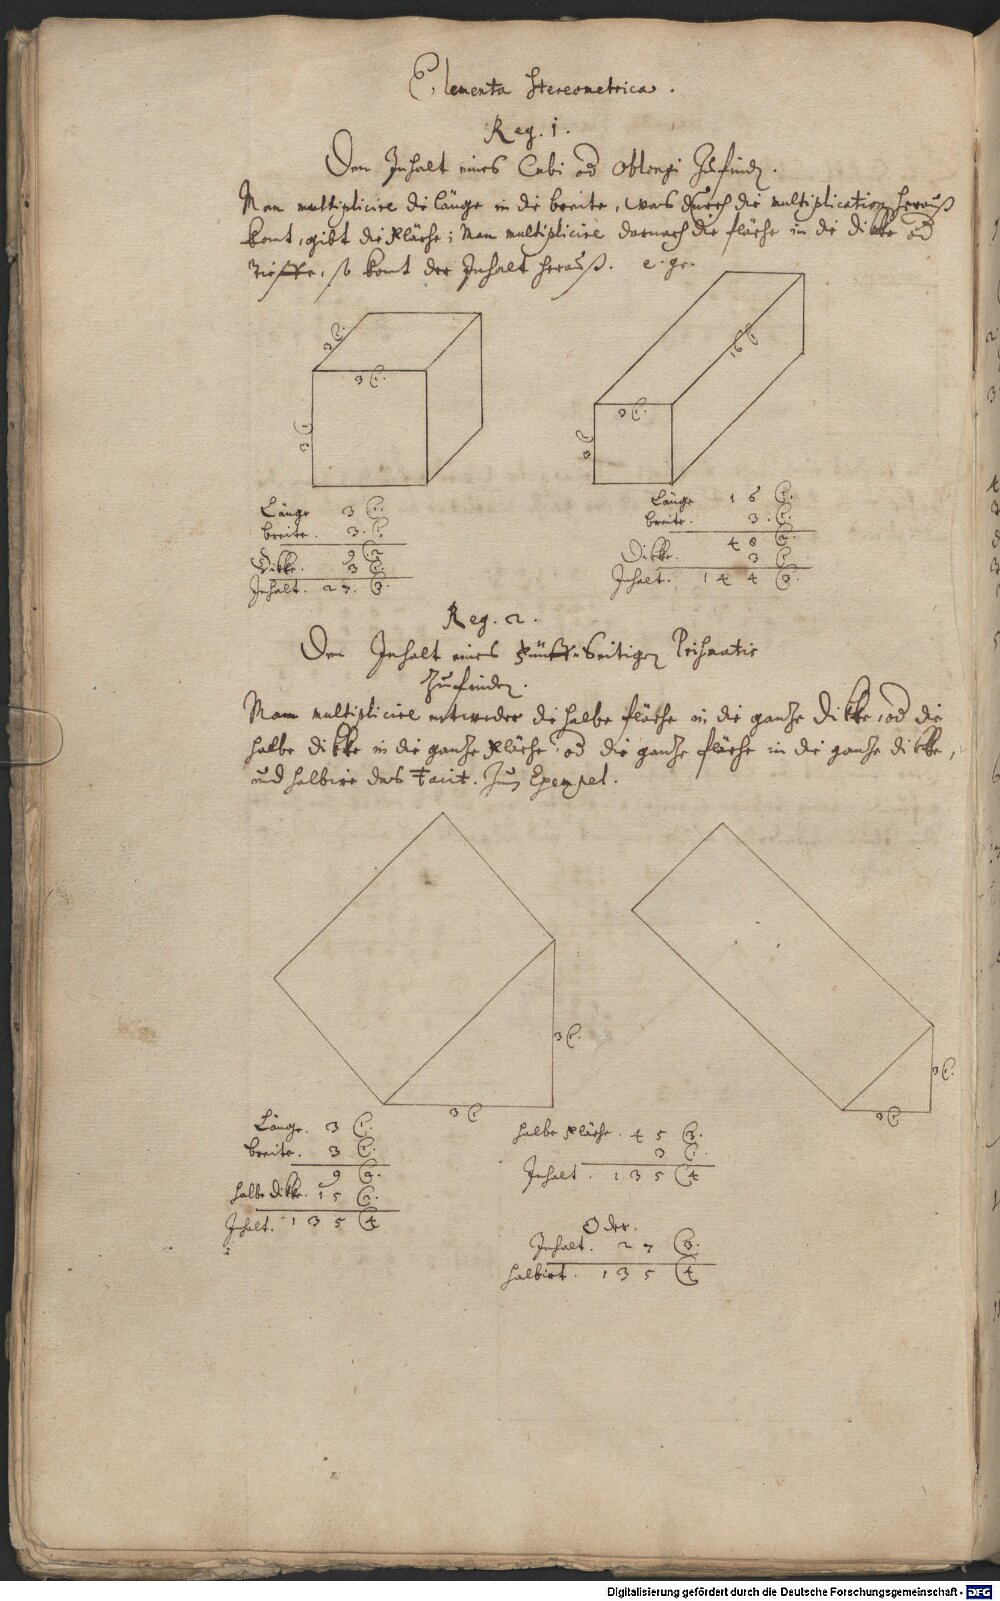 Elementa Stereometrica.
Reg. 1.
Den Inhalt eines Cubi od Oblongi Zufinden.
Man multiplicire die länge in die breite, was durch die multiplication herauß
komt, gibt die Fläche; Man multiplicire darnach die fläche in die dikke od
Tieffe, so komt der Inhalt herauß. e. gr.
3 (1.
3 (1.
3 (1
16 (1
3 (1.
3 (1
Länge 3 (1.
breite. 3. (1.
9 (2
Dikke. 3 (1.
Inhalt. 27. (3.
Länge 16 (1.
breite. 3. (1.
48 (2.
Dikke. 3 (1.
Inhalt. 144 (3.
Reg. 2.
Den Inhalt eines fünff-Seitigen Prismatis
Zufinden.
Man multiplicire entweder die halbe fläche in die gantze Dikke, od die
halbe dikke in die gantze Fläche, od die gantze fläche in die gantze dikke,
und halbire das Facit. Zum Exempel.
3 (1.
3 (1
3 (1.
3 (1
Länge. 3 (1.
breite. 3 (1.
9 (2.
halbe dikke. 15 (2.
Inhalt. 135 (4
halbe Fläche. 45 (3.
3 (1.
Inhalt. 135 (4
Oder.
Inhalt. 27 (3.
halbirt. 135 (4
Digitalisierung gefördert durch die Deutsche Forschungsgemeinschaft - DFG